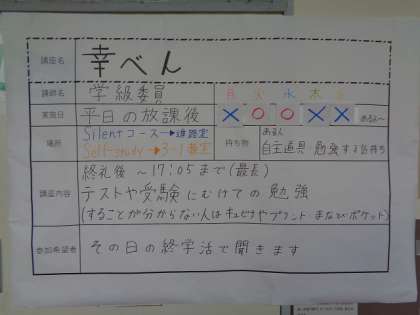 講座名 幸べん
講師名 学級委員 月 火 水 木 金
実施日 平日の放課後 × ○ ○ × × あるよ〜
場所 Silentコース→進路室
Self-study→3-1教室
持ち物 自主道具 勉強する気持ち
講座内容 終礼後 〜17:05まで(最長)
テストや受験にむけての勉強
(することが分からない人はキュビナやプリント・まなびポケット)
参加希望者 その日の終学活で聞きます